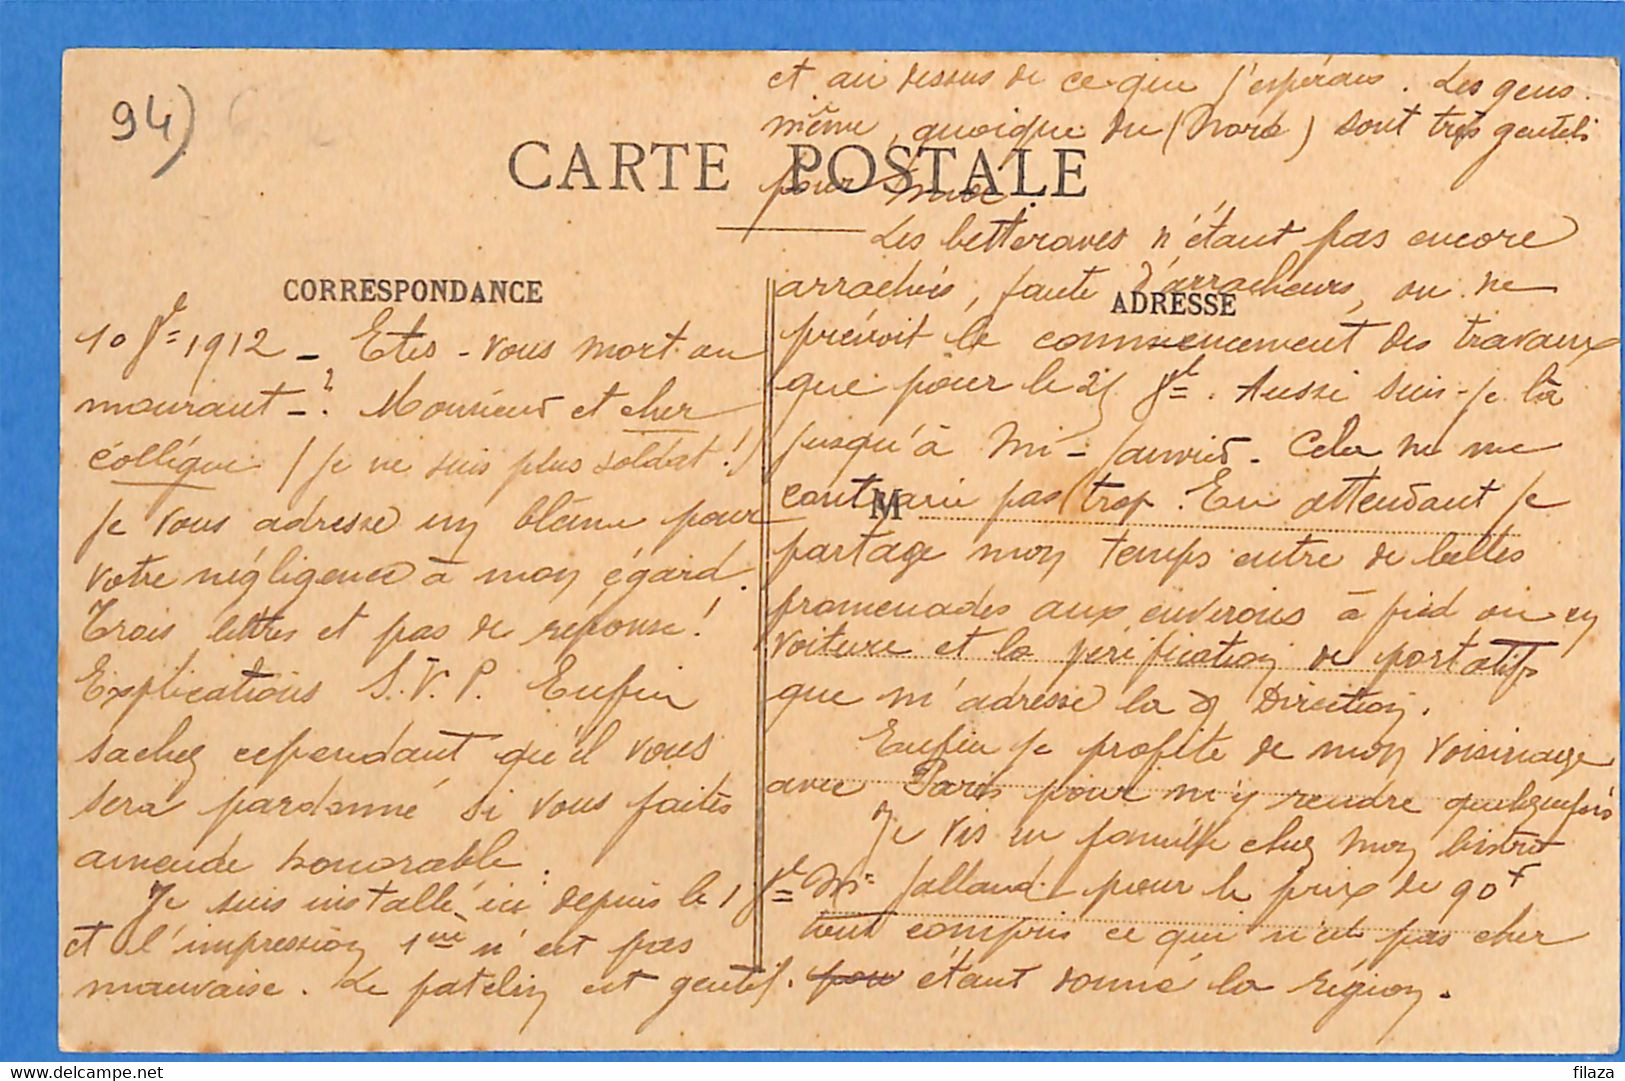 94)
CARTE POSTALE
CORRESPONDANCE
10 8bre 1912 - Etes-vous mort ou
mourant - ? Monsieur et cher
collègue (je ne suis plus soldat !)
Je vous adresse un blâme pour
votre négligence à mon égard.
Trois lettres et pas de réponse !
Explications S.V.P. Enfin
sachez cependant qu'il vous
sera pardonné si vous faites
amende honorable.
Je suis installé ici depuis le 1 8bre
et l'impression 1ère n'est pas
mauvaise. Le patelin est gentil.
et au dessus de ce que j'espérais. Les gens
même, quoique du (Nord) sont très gentils
pour moi.
Les betteraves n'étant pas encore
arrachées, faute d'arracheurs, on ne
ADRESSE
prévoit le commencement des travaux
que pour le 25 8bre. Aussi suis-je là
jusqu'à mi-janvier. Cela ne me
contrarie pas trop. En attendant je
M
partage mon temps entre de belles
promenades aux environs à pied ou en
voiture et la vérification de portatifs
que m'adresse la Direction.
Enfin je profite de mon voisinage
avec Paris pour m'y rendre quelquefois
Je vis en famille chez mon bistrot
Mr Jalland pour le prix de 90f
tout compris ce qui n'est pas cher
pou étant donné la région.
filaza